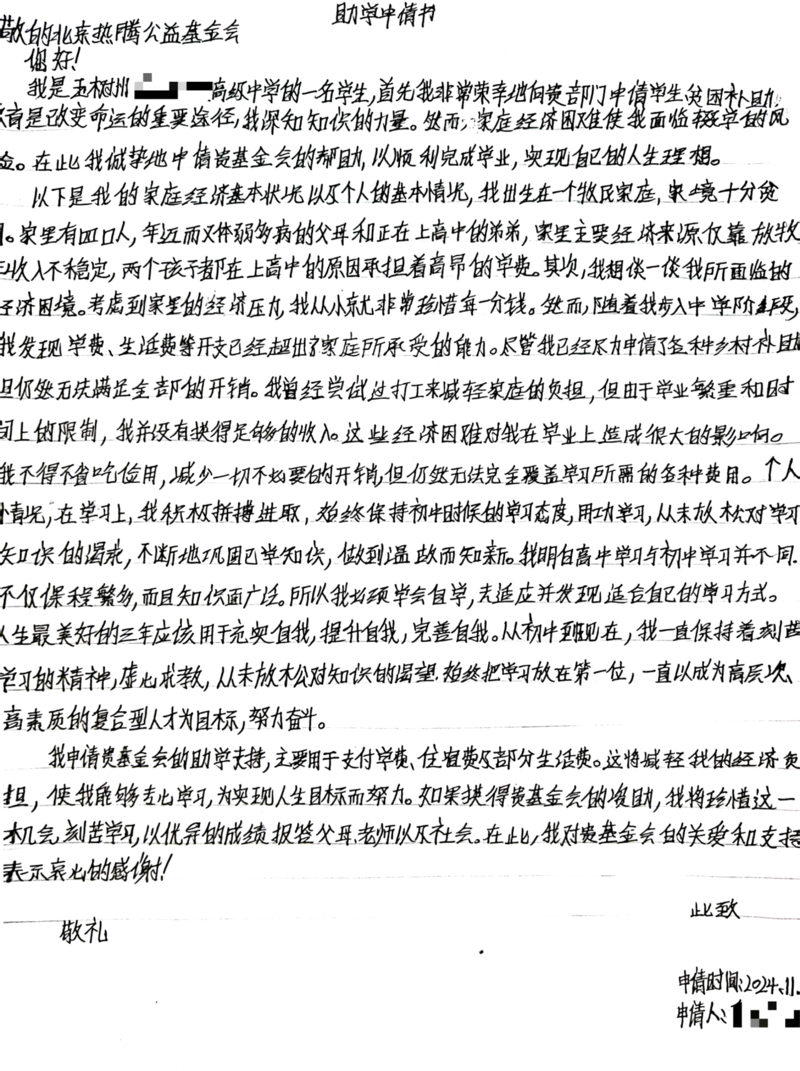 助学申请书
敬的北京热腾公益基金会
您好！
我是玉树州 高级中学的一名学生，首先我非常荣幸地向贵部门申请学生贫困补助。
育是改变命运的重要途径，我深知知识的力量。然而，家庭经济困难使我面临辍学的风
险。在此我诚挚地申请贵基金会的帮助，以顺利完成学业，实现自己的人生理想。
以下是我的家庭经济基本状况以及个人的基本情况，我出生在一个牧民家庭，家境十分贫
。家里有四口人，年迈而又体弱多病的父母和正在上高中的弟弟，家里主要经济来源仅靠放牧
收入不稳定，两个孩子都在上高中的原因承担着高昂的学费。其次，我想谈一谈我所面临的
经济困境。考虑到家里的经济压力，我从小就非常珍惜每一分钱。然而，随着我步入中学阶段，
我发现学费、生活费等开支已经超出了家庭所承受的能力。尽管我已经尽力申请了各种乡村补助
但仍然无法满足全部的开销。我曾经尝试过打工来减轻家庭的负担，但由于学业繁重和时
间上的限制，我并没有换得足够的收入。这些经济困难对我在学业上造成很大的影响。
我不得不省吃俭用，减少一切不必要的开销，但仍然无法完全覆盖学习所需的各种费用。个人
情况，在学习上，我积极拼搏进取，始终保持初中时候的学习态度，用功学习，从未放松对学习
知识的渴求，不断地巩固已学知识，做到温故而知新。我明白高中学习与初中学习并不同．
不仅课程繁多，而且知识面广泛。所以我必须学会自学，去适应并发现适合自己的学习方式。
人生最美好的三年应该用于充实自我，提升自我，完善自我。从初中到现在，我一直保持着刻苦
学习的精神，虚心求教，从未放松对知识的渴望．始终把学习放在第一位，一直以成为高层次、
高素质的复合型人才为目标，努力奋斗。
我申请贵基金会的助学支持，主要用于支付学费、住宿费及部分生活费。这将减轻我的经济负
担，使我能够专心学习，为实现人生目标而努力。如果获得贵基金会的资助，我将珍惜这一
机会，刻苦学习，以优异的成绩报答父母、老师以及社会。在此，我对贵基金会的关爱和支持
表示衷心的感谢！
此致
敬礼
申请时间：2024.11.
申请人：